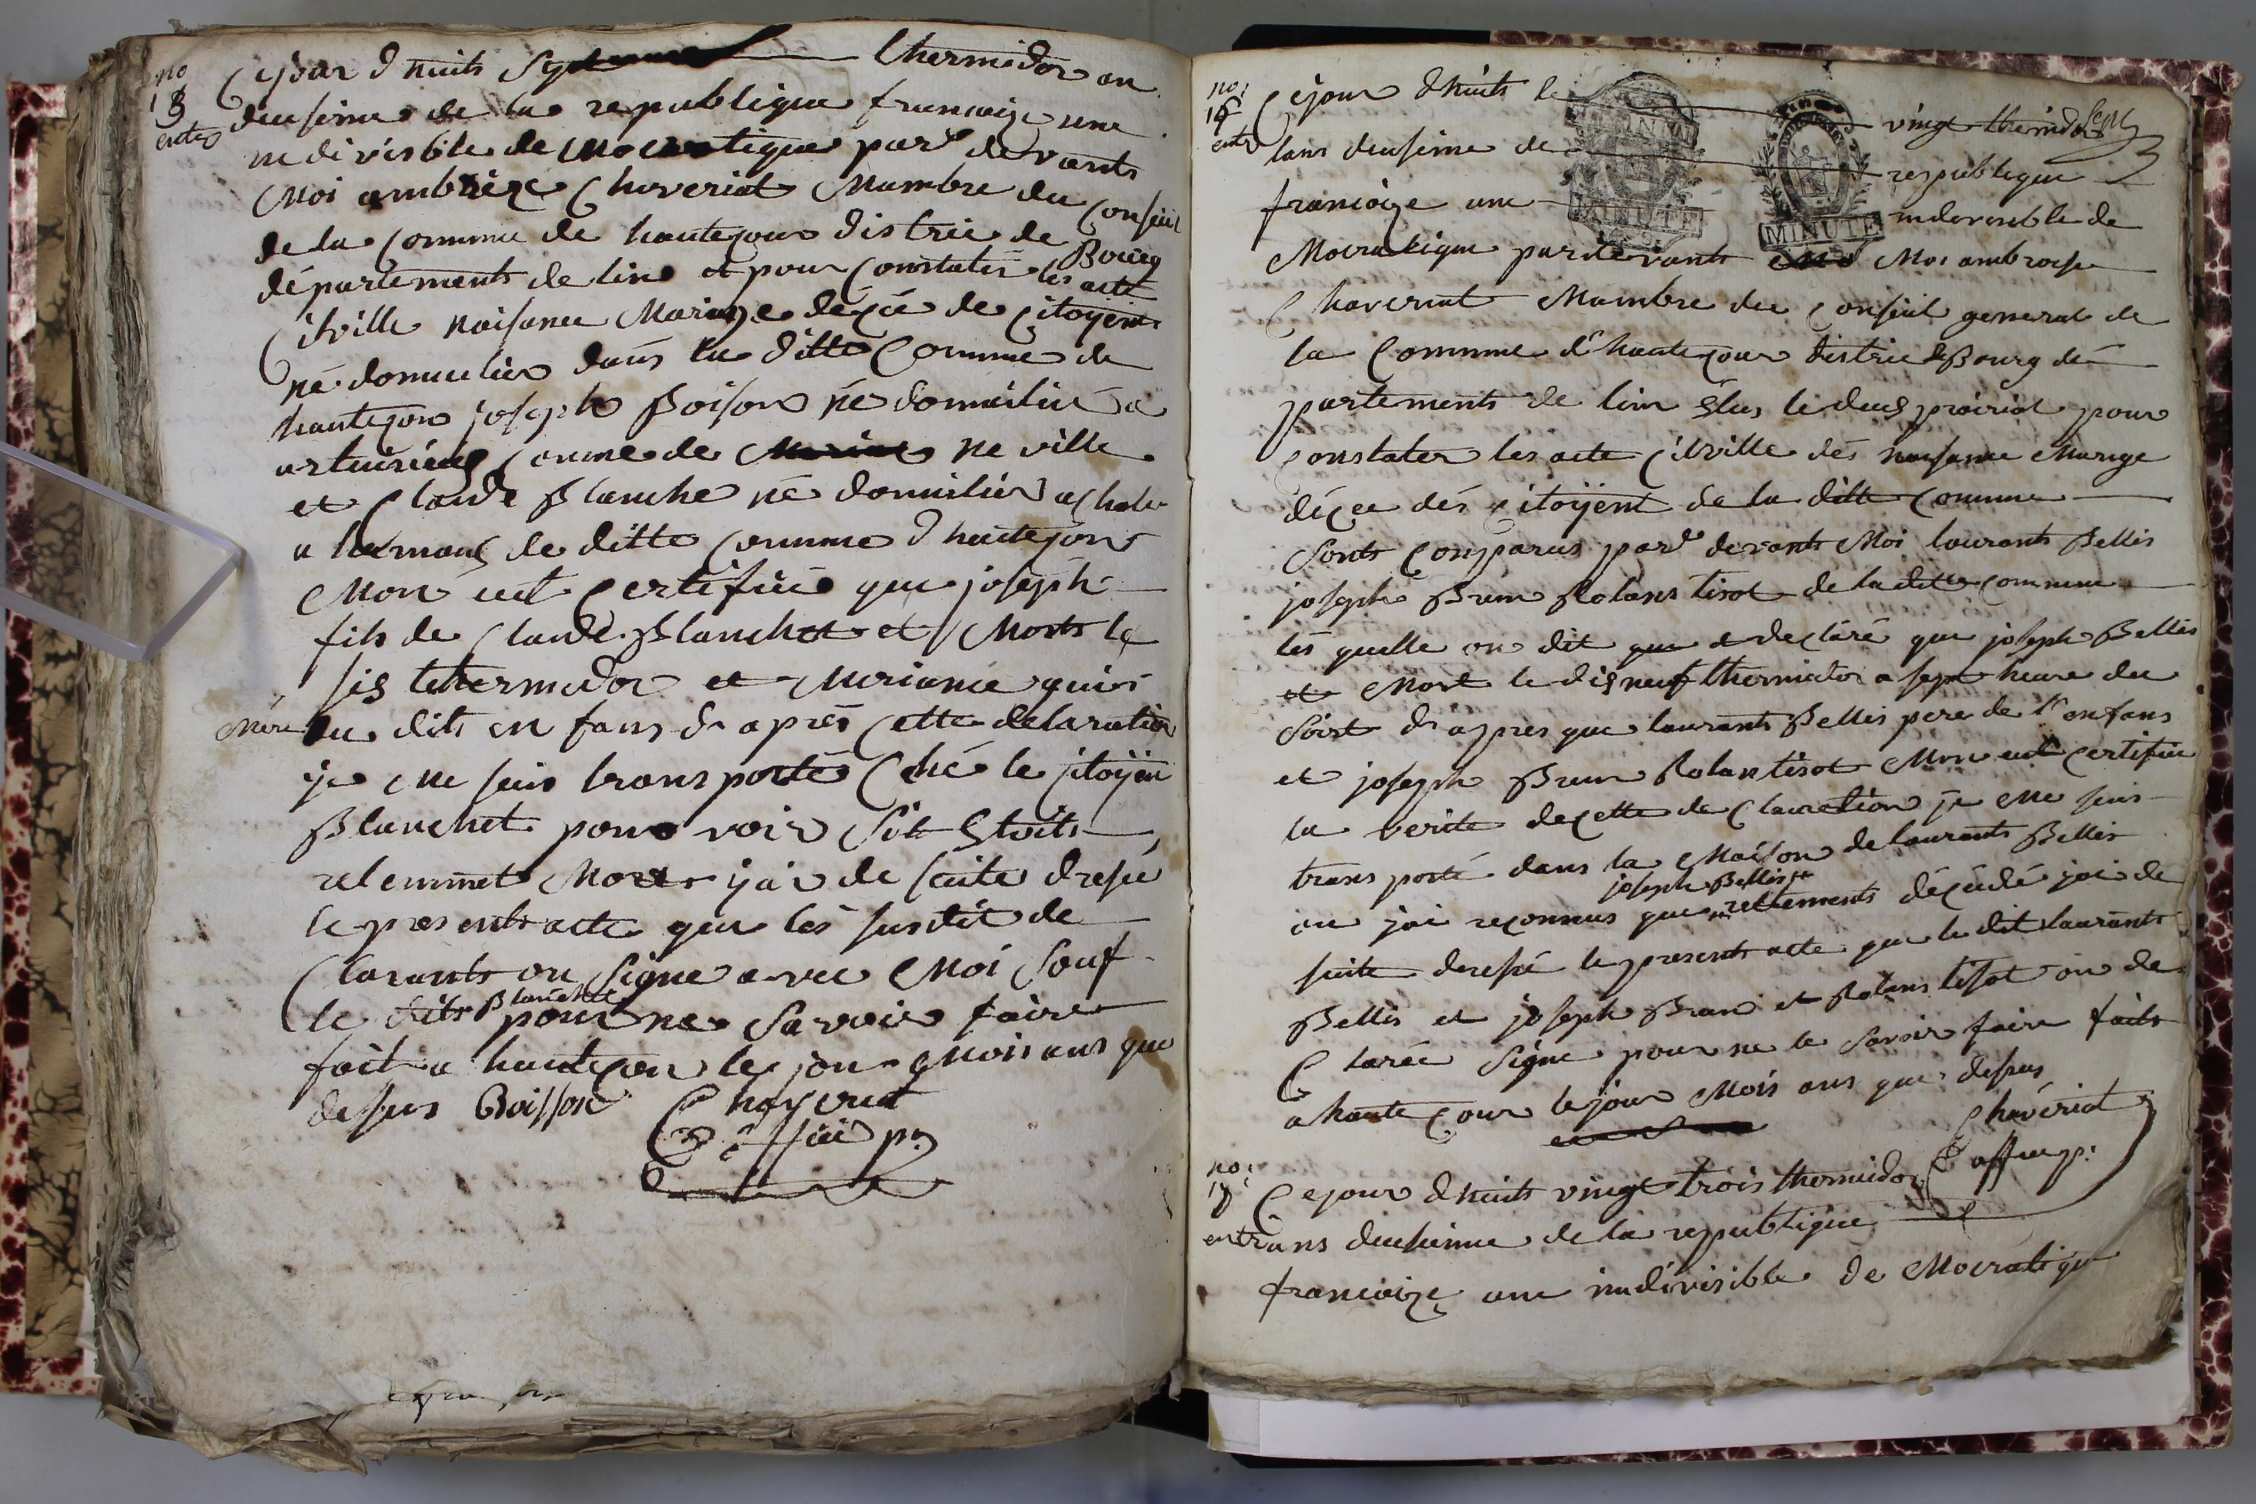 no
13
Ce jour d huits thermidor an
deusieme de la republique francoize une
indivisible de mocratique par devants
Moi ambroize Chaveriat Mambre du Conseil
de la Commune de hautejour distric de Bourg
départements de lin et pour Constater les acte
Citville naisance Mariage décée de Citoyens
né domicilier dans la ditte Commune de
hautecour joseph Boison né domicilié a
Comune de ne ville
et Claude Blanche né domicilier
de ditte Commune d hautejour
Mon Certifiié que joseph
fils de Claude Blanchet et Morts le
sis thermidor et Marianne
Mère du dits en fans d apres cette delaration
je me suis transporté Ché le Citoyen
Blanchet pour voir Sil Etoits
relemmet Morts jai de suite dresé
le presents acte que les susdit de
Clarants on Signe avec Moi Souf
le dits Blanchet pour ne Savoir faire
fait a hautecour le jour Mois ans que
desus Boisson Chaveriat
officié p.
no:
14
Ce jour d huits le vingt thermidor
lans deusieme de republique
MINUTE
MINUTE
francoize une indivisible de
Mocratique par devants Moi ambroise
Chaveriat Mambre du Conseil general de
la Commune d hautecour distric de Bourg dé
partements de linn élus le deus prairial pour
Constater les acte Citville des naisance Mariage
décée dés Citoÿens de la ditte Commune
Sonts Comparus par devants Moi laurants Bellis
joseph Brun Rolans tisot de la ditte Commune
lés quelle on dit que declaré que joseph Bellis
et Mort le dis neuf thermidor a sept heure du
Soirt d apres que laurants Bellis pere de l enfans
et joseph Brun Rolan tisot Mon Certifiié
la verite de cette de Claration je me suis
trans porté dans la Maison de laurants Bellis
ou jai reconnus que joseph Bellis rellements décédé jai de
suite dresé le presents acte que le dit laurants
Bellis et joseph Brun et Rolans tisot on de
Clarée Signe pour ne le Savoir faire faits
a hautecour le jour Mois ans que desus
Chavériat
off p:
no:
Ce jour d huits vingt trois thermidor
lans deusieme de la republique
francoize une indivisible de Mocratique